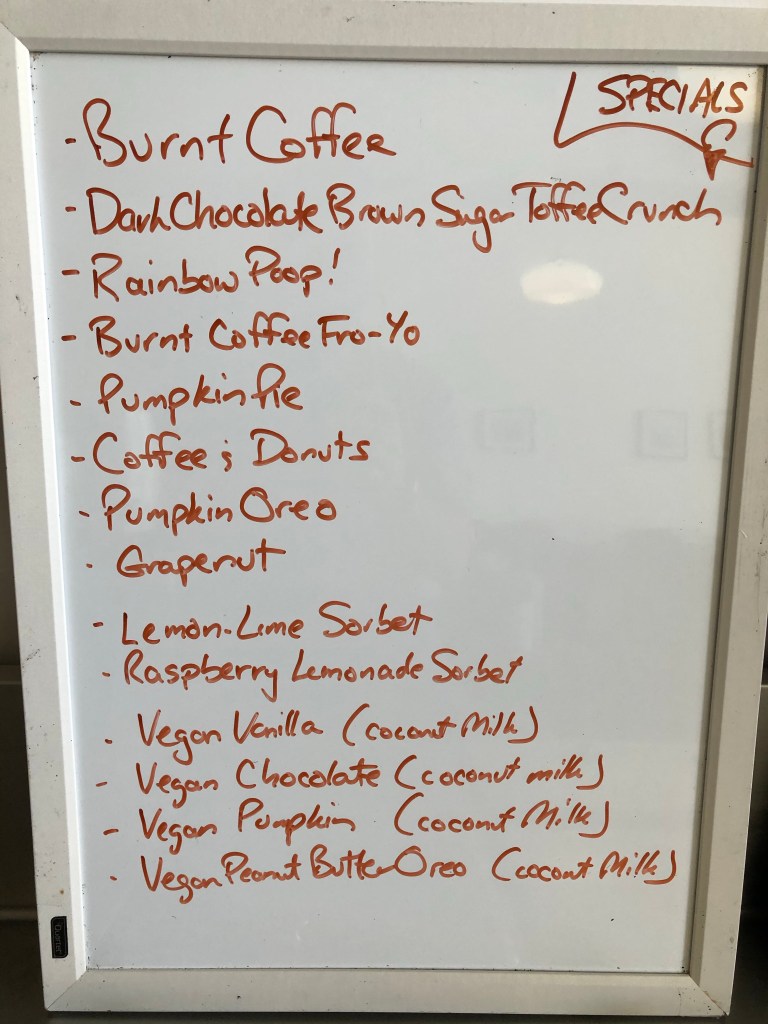 SPECIALS
- Burnt Coffee
- Dark Chocolate Brown Sugar Toffee Crunch
- Rainbow Poop!
- Burnt Coffee Fro-Yo
- Pumpkin Pie
- Coffee & Donuts
- Pumpkin Oreo
- Grapenut
- Lemon-Lime Sorbet
- Raspberry Lemonade Sorbet
- Vegan Vanilla (coconut Milk)
- Vegan Chocolate (coconut milk)
- Vegan Pumpkin (coconut Milk)
- Vegan Peanut Butter Oreo (coconut Milk)
Quartet